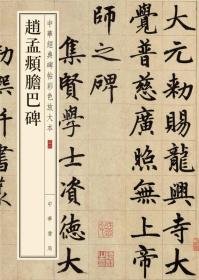 大元敕賜龍興寺大
覺普慈廣照無上帝
師之碑
集賢學士資德大
中華經典碑帖彩色放大本
趙孟頫膽巴碑
中華書局